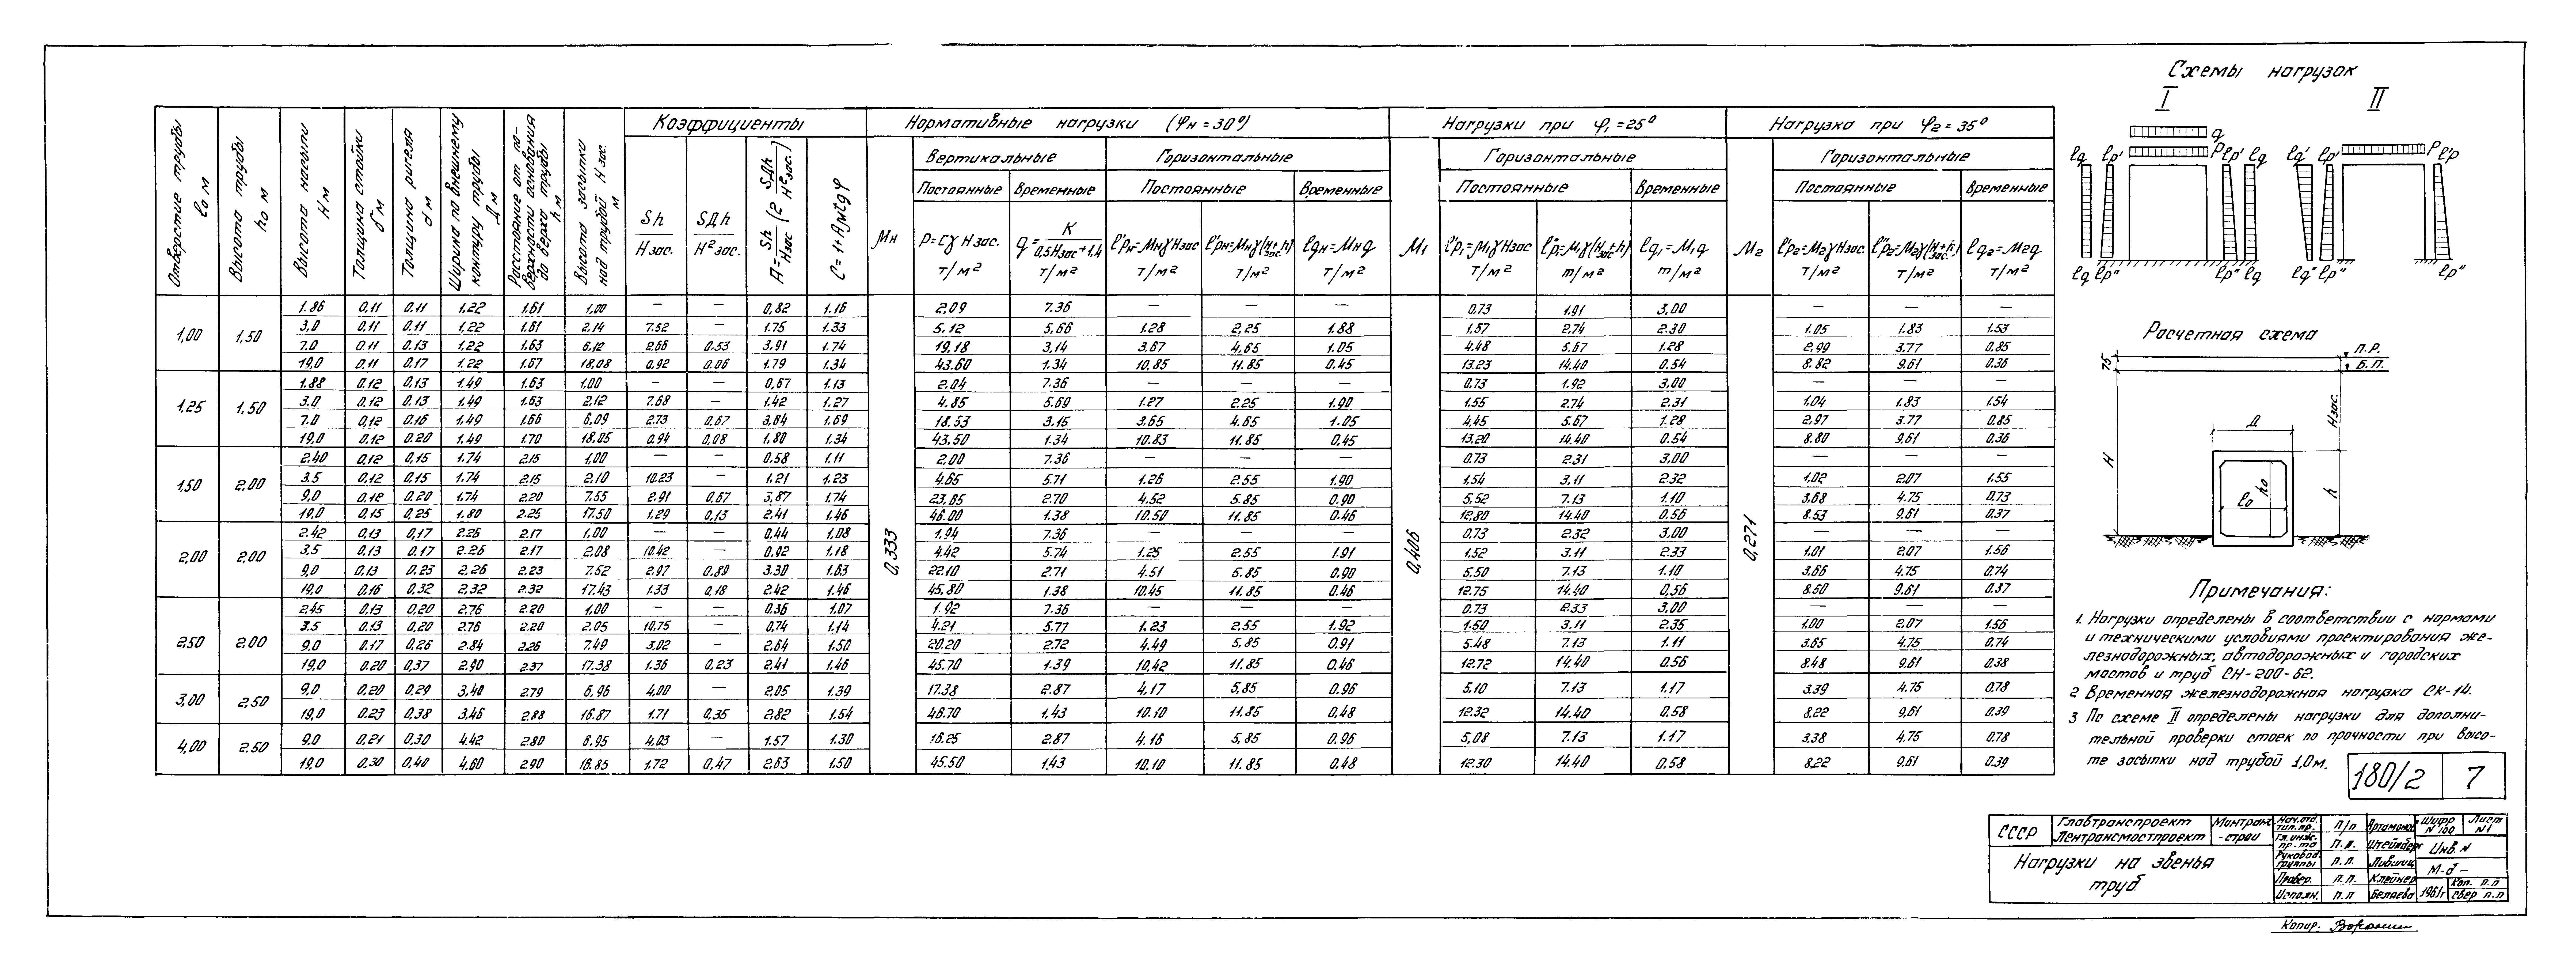 Схемы нагрузок
I II
Отверстие трубы lо м
Высота трубы hо м
Высота насыпи Н м
Толщина стойки б м
Толщина ригеля d м
Ширина по внешнему контуру трубы Д м
Расстояние от поверхности основания до верха трубы h м
Высота засыпки над трубой Н зас. м
Коэффициенты
Нормативные нагрузки (φн=30°)
Нагрузки при φ1=25°
Нагрузка при φ2=35°
Вертикальные Горизонтальные Горизонтальные Горизонтальные
Постоянные Временные Постоянные Временные Постоянные Временные Постоянные Временные
Sh / Нзас.
SДh / Н²зас.
A = Sh/Нзас (2 SДh/Н²зас.)
C=1+Aμtgφ
Мн
P=Cγ Нзас. т/м²
q=K/0,5Нзас+1,4 т/м²
l'рн=Мнγ Нзас т/м²
l"рн=Мнγ(Нзас.+h) т/м²
lqн=Мнq т/м²
М1
l'р1=М1γ Нзас т/м²
l"р1=М1γ(Нзас+h) т/м²
lq1=М1q т/м²
М2
l'р2=М2γ Нзас. т/м²
l"р2=М2γ(Нзас.+h) т/м²
lq2=М2q т/м²
0,333 0,406 0,271
1,00 1,50
1.86 0,11 0,11 1,22 1,61 1,00 — — 0,82 1.16 2.09 7.36 — — — 0.73 1.91 3,00 — — —
3,0 0,11 0,11 1,22 1,61 2,14 7.52 — 1.75 1.33 5,12 5,66 1.28 2,25 1.88 1,57 2.74 2.30 1.05 1.83 1.53
7.0 0,11 0,13 1,22 1,63 6,12 2.66 0,53 3,91 1.74 19,18 3,14 3,67 4,65 1,05 4.48 5,67 1.28 2,99 3.77 0.85
19,0 0,11 0,17 1,22 1.67 18,08 0,92 0,06 1.79 1.34 43.60 1.34 10,85 11.85 0.45 13.23 14,40 0.54 8.82 9,61 0.36
1.25 1,50
1.88 0,12 0,13 1.49 1.63 1,00 — — 0,67 1.13 2.04 7.36 — — — 0.73 1.92 3,00 — — —
3,0 0,12 0,13 1,49 1,63 2,12 7.68 — 1.42 1.27 4.85 5.69 1.27 2.25 1.90 1.55 2.74 2.31 1.04 1.83 1.54
7,0 0,12 0,16 1,49 1.66 6,09 2.73 0,67 3,64 1.69 18.53 3,15 3.65 4.65 1.05 4,45 5.67 1.28 2.97 3.77 0.85
19,0 0,12 0,20 1,49 1.70 18,05 0,94 0,08 1,80 1.34 43,50 1.34 10.83 11.85 0,45 13.20 14.40 0.54 8.80 9,61 0.36
1,50 2,00
2.40 0,12 0,15 1.74 2.15 1,00 — — 0.58 1,11 2.00 7.36 — — — 0.73 2.31 3,00 — — —
3.5 0,12 0,15 1.74 2.15 2,10 10.23 — 1.21 1.23 4,65 5.71 1.26 2.55 1,90 1,54 3.11 2.32 1.02 2.07 1.55
9,0 0,12 0,20 1,74 2.20 7.55 2.91 0,67 3,87 1.74 23,65 2.70 4.52 5.85 0.90 5,52 7.13 1.10 3.68 4.75 0.73
19,0 0,15 0,25 1.80 2.25 17.50 1.29 0,13 2.41 1.46 46.00 1.38 10.50 11,85 0.46 12,80 14.40 0.56 8.53 9,61 0.37
2,00 2,00
2.42 0,13 0,17 2.26 2.17 1.00 — — 0,44 1,08 1.94 7.36 — — — 0.73 2.32 3,00 — — —
3.5 0,13 0,17 2.26 2.17 2,08 10.42 — 0,92 1.18 4.42 5.74 1.25 2.55 1.91 1.52 3.11 2.33 1.01 2.07 1.56
9,0 0,13 0,23 2,26 2.23 7.52 2.97 0,89 3.30 1.63 22.10 2.71 4.51 5.85 0.90 5,50 7.13 1.10 3.66 4.75 0,74
19,0 0,16 0,32 2,32 2.32 17.43 1.33 0,18 2.42 1.46 45,80 1.38 10.45 11.85 0.46 12.75 14.40 0,56 8.50 9.61 0.37
2,50 2.00
2.45 0,13 0,20 2.76 2.20 1,00 — — 0.36 1,07 1.92 7.36 — — — 0.73 2.33 3,00 — — —
3.5 0,13 0,20 2.76 2.20 2.05 10,75 — 0,74 1.14 4.21 5.77 1.23 2.55 1.92 1.50 3.11 2.35 1.00 2.07 1.56
9,0 0.17 0,26 2.84 2.26 7.49 3,02 — 2,64 1.50 20.20 2.72 4.49 5,85 0,91 5.48 7.13 1.11 3.65 4.75 0.74
19,0 0,20 0,37 2.90 2.37 17.38 1.36 0,23 2.41 1.46 45.70 1.39 10,42 11.85 0,46 12.72 14.40 0.56 8.48 9,61 0.38
3,00 2.50
9,0 0,20 0,29 3,40 2.79 6,96 4,00 — 2.05 1.39 17.38 2.87 4,17 5,85 0.96 5,10 7.13 1.17 3.39 4.75 0,78
19,0 0,23 0,38 3,46 2.88 16.87 1.71 0,35 2,82 1.54 46.70 1,43 10.10 11.85 0.48 12.32 14.40 0.58 8,22 9,61 0.39
4,00 2.50
9,0 0,21 0,30 4.42 2.80 6,95 4,03 — 1.57 1.30 16.25 2.87 4.16 5,85 0.96 5,08 7.13 1.17 3.38 4.75 0.78
19,0 0,30 0,40 4.60 2.90 16,85 1.72 0,47 2.63 1.50 45.50 1,43 10.10 11.85 0.48 12.30 14.40 0.58 8,22 9,61 0.39
q
P
lq lр' lр' lq lq' lр' P l'р
lq lр" lр" lq lq" lр" lр"
Расчетная схема
75 П.Р.
Б.П.
Нзас.
Д
Н lо hо h
Примечания:
1. Нагрузки определены в соответствии с нормами
и техническими условиями проектирования же-
лезнодорожных, автодорожных и городских
мостов и труб СН-200-62.
2 Временная железнодорожная нагрузка СК-14.
3 По схеме II определены нагрузки для дополни-
тельной проверки стоек по прочности при высо-
те засыпки над трубой 1,0м.
180/2 7
СССР Главтранспроект Лентрансмостпроект Минтранс-строй
Нагрузки на звенья
труб
Нач.отд. тип.пр. П/п Артамонов
Гл.инж. пр-та П.п. Штейнберг
Руковод. группы П.п. Лившиц
Провер. П.п. Клейнер
Исполн. П.п Беляева
Шифр N 180 Лист N1
Инв.N
М-б —
1961г Коп. п.п
Свер п.п
Копир.